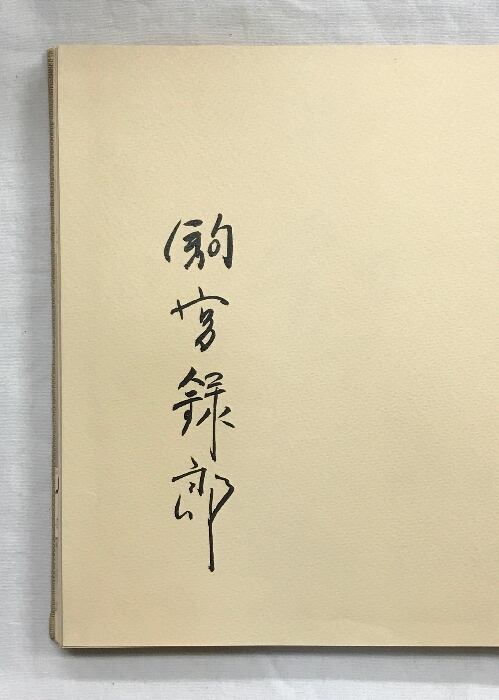 駒宮録郎